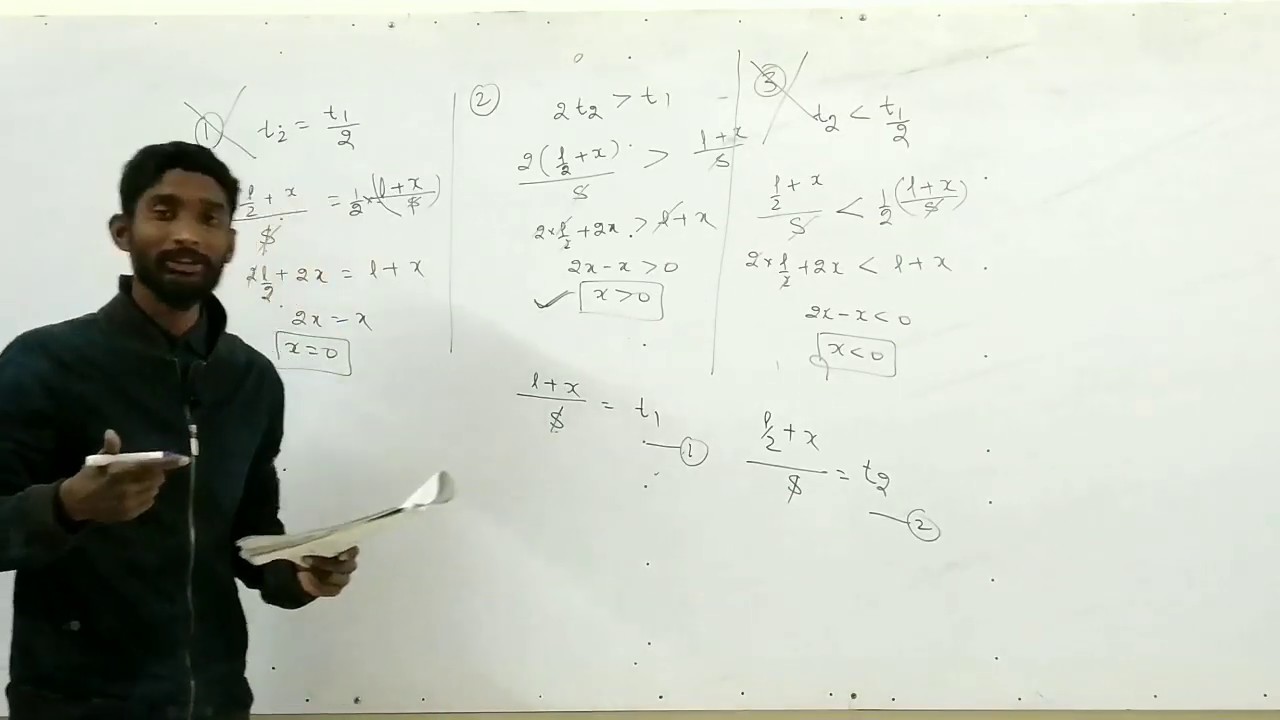 ①
t₂ = t₁/2
(l/2 + x)/s = 1/2 × (l + x)/s
2l/2 + 2x = l + x
2x = x
x = 0
②
2t₂ > t₁
2(l/2 + x)/s > (l + x)/s
2×l/2 + 2x > l + x
2x - x > 0
✓ x > 0
(l + x)/s = t₁
①
③
t₂ < t₁/2
(l/2 + x)/s < 1/2 (l + x)/s
2×l/2 + 2x < l + x
2x - x < 0
x < 0
(l/2 + x)/s = t₂
②